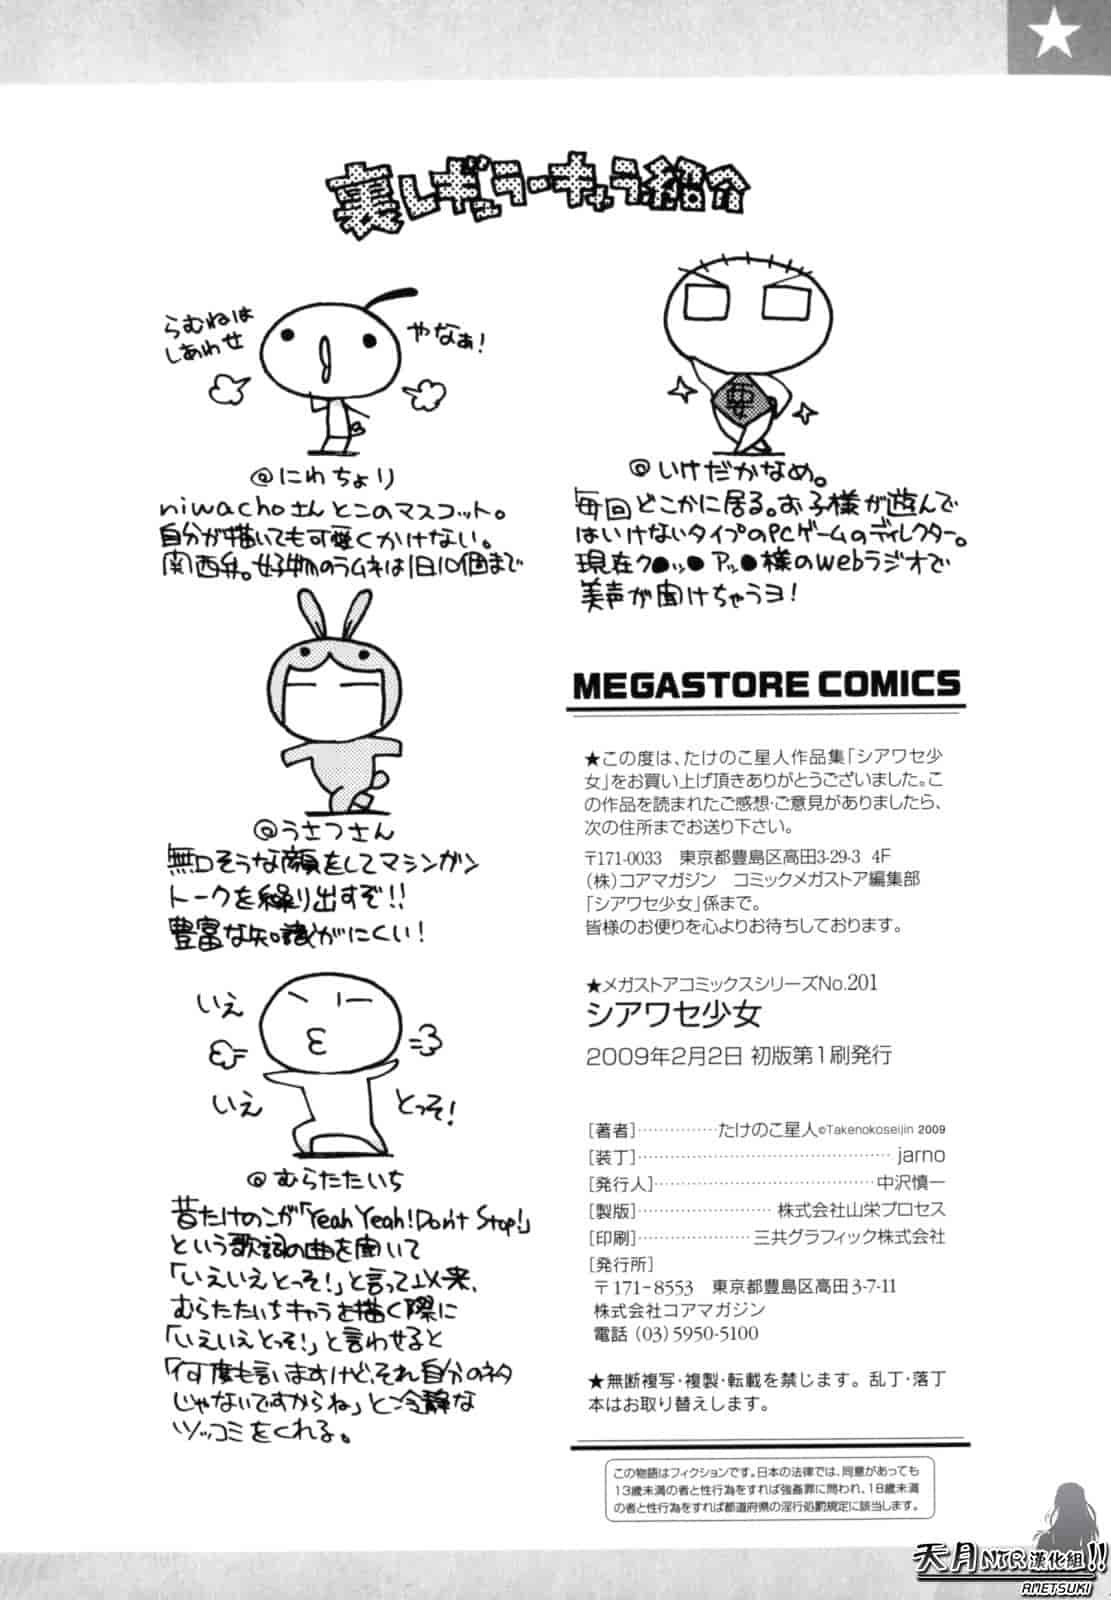 裏レギュラーキャラ紹介
らむねは
しあわせ
やなぁ!
@にわちょり
niwachoさんとこのマスコット。
自分が描いても可愛くかけない。
関西弁。好物のラムネは1日10個まで
@うさつさん
無口そうな顔をしてマシンガン
トークを繰り出すぞ!!
豊富な知識がにくい!
いえ
いえ
とっそ!
@むらたたいち
昔たけのこが「Yeah Yeah!Don't Stop!」
という歌詞の曲を聞いて
「いえいえとっそ!」と言って以来、
むらたたいちキャラを描く際に
「いえいえとっそ!」と言わせると
「何度も言いますけど、それ自分のネタ
じゃないですからね」と冷静な
ツッコミをくれる。
要
@いけだかなめ。
毎回どこかに居る。お子様が遊んで
はいけないタイプのPCゲームのディレクター。
現在ク●ッ●アッ●様のwebラジオで
美声が聞けちゃうヨ!
MEGASTORE COMICS
★この度は、たけのこ星人作品集「シアワセ少
女」をお買い上げ頂きありがとうございました。こ
の作品を読まれたご感想・ご意見がありましたら、
次の住所までお送り下さい。
〒171-0033 東京都豊島区高田3-29-3 4F
(株)コアマガジン コミックメガストア編集部
「シアワセ少女」係まで。
皆様のお便りを心よりお待ちしております。
★メガストアコミックスシリーズNo.201
シアワセ少女
2009年2月2日 初版第1刷発行
[著者]‥‥‥‥‥たけのこ星人©Takenokoseijin 2009
[装丁]‥‥‥‥‥‥‥‥‥‥‥‥‥‥‥jarno
[発行人]‥‥‥‥‥‥‥‥‥‥‥‥‥中沢慎一
[製版]‥‥‥‥‥‥‥‥株式会社山栄プロセス
[印刷]‥‥‥‥‥‥‥三共グラフィック株式会社
[発行所]
〒171-8553 東京都豊島区高田3-7-11
株式会社コアマガジン
電話 (03)5950-5100
★無断複写・複製・転載を禁じます。乱丁・落丁
本はお取り替えします。
この物語はフィクションです。日本の法律では、同意があっても
13歳未満の者と性行為をすれば強姦罪に問われ、18歳未満
の者と性行為をすれば都道府県の淫行処罰規定に該当します。
天月NTR漢化組!!
AMETSUKI